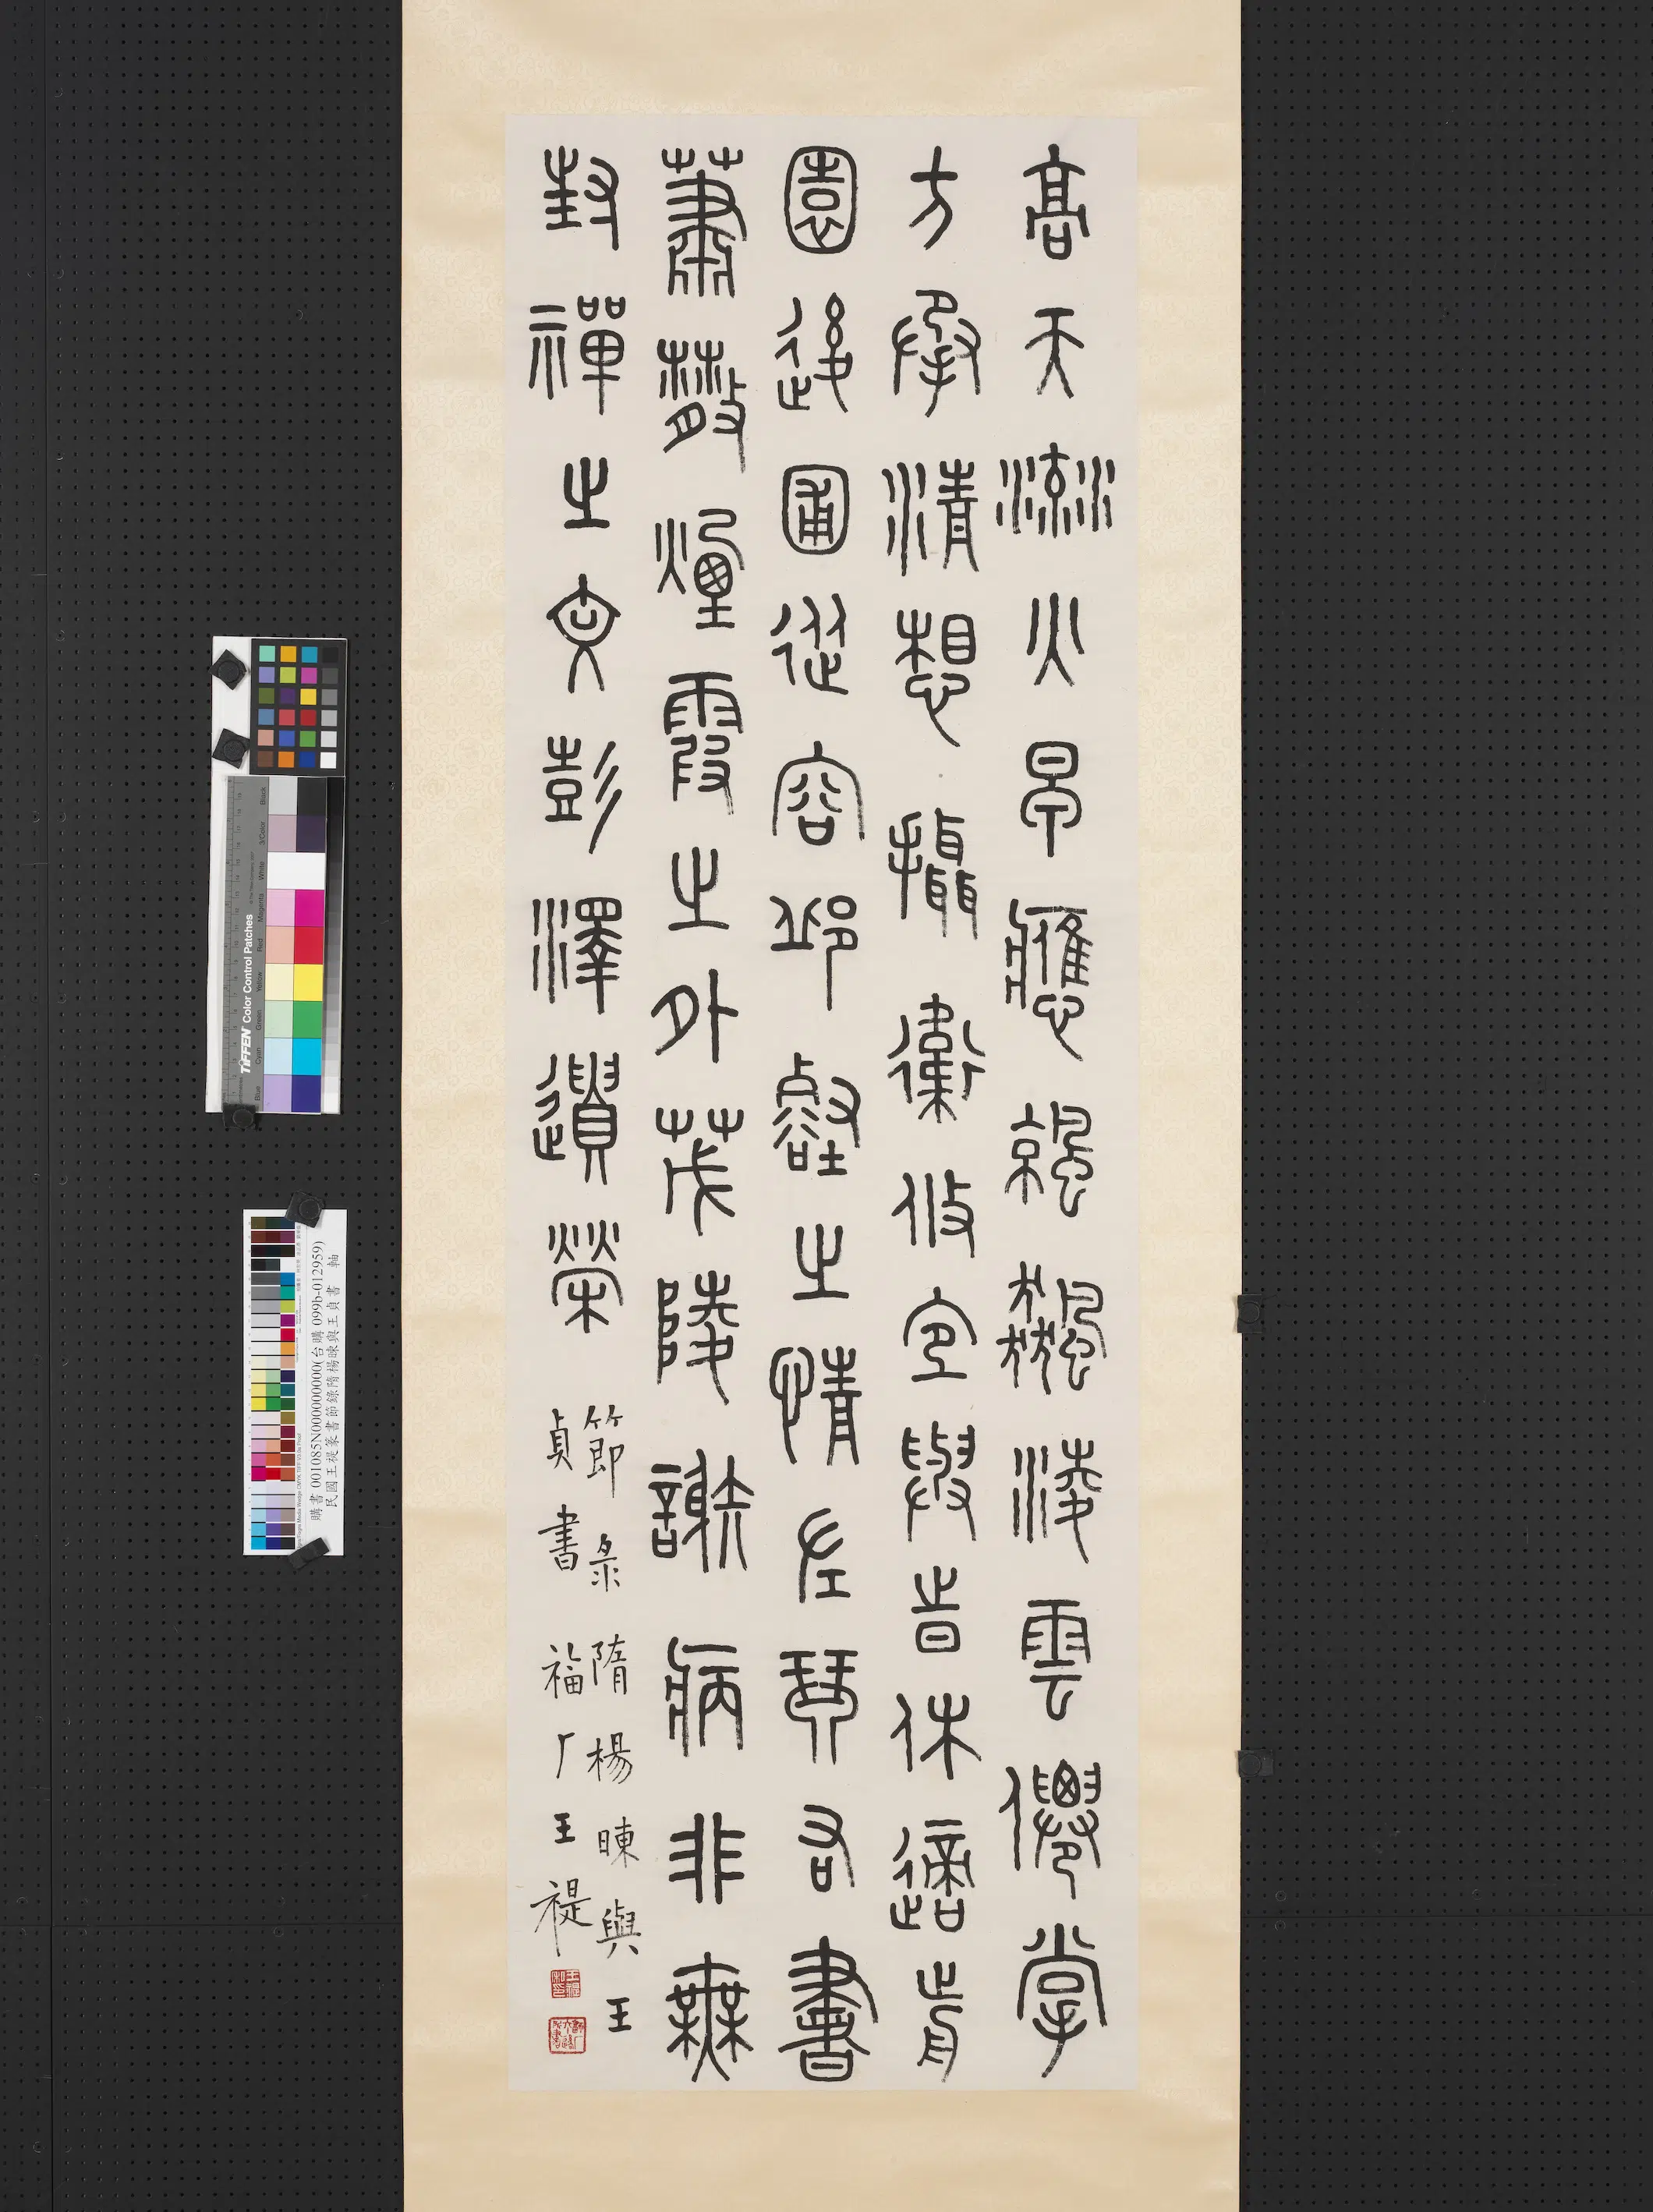 高天流火早應䬒飆淩雲僊掌
方承清想攝衛攸宜與旹休適歬
園後圃從容邱壑之情左琴右書
蕭散煙霞之外茂陵謝病非無
封禪之文彭澤遺榮
節錄隋楊暕與王
貞書福厂王禔
王禔私印
TIFFEN Color Control Patches
Blue Cyan Green Yellow Red Magenta White 3/Color Black
購書 001085N000000000(台購 099b-012959)
民國王禔篆書節錄隋楊暕與王貞書 軸